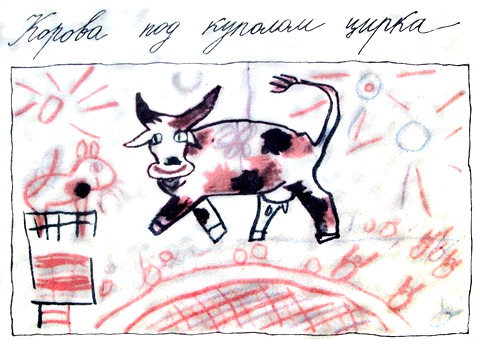 Корова под куполом цирка